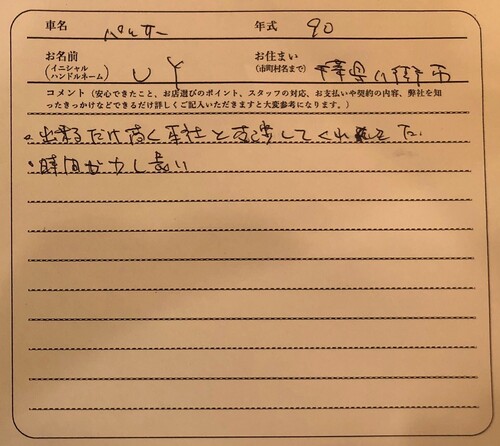 車名 パルサー 年式 90
お名前 お住まい
(イニシャル ハンドルネーム) U Y (市町村名まで) 千葉県八街市
コメント（安心できたこと、お店選びのポイント、スタッフの対応、お支払いや契約の内容、弊社を知
ったきっかけなどできるだけ詳しくご記入いただきますと大変参考になります。）
・出来るだけ高く 社と してくれた
・時間が少し長い